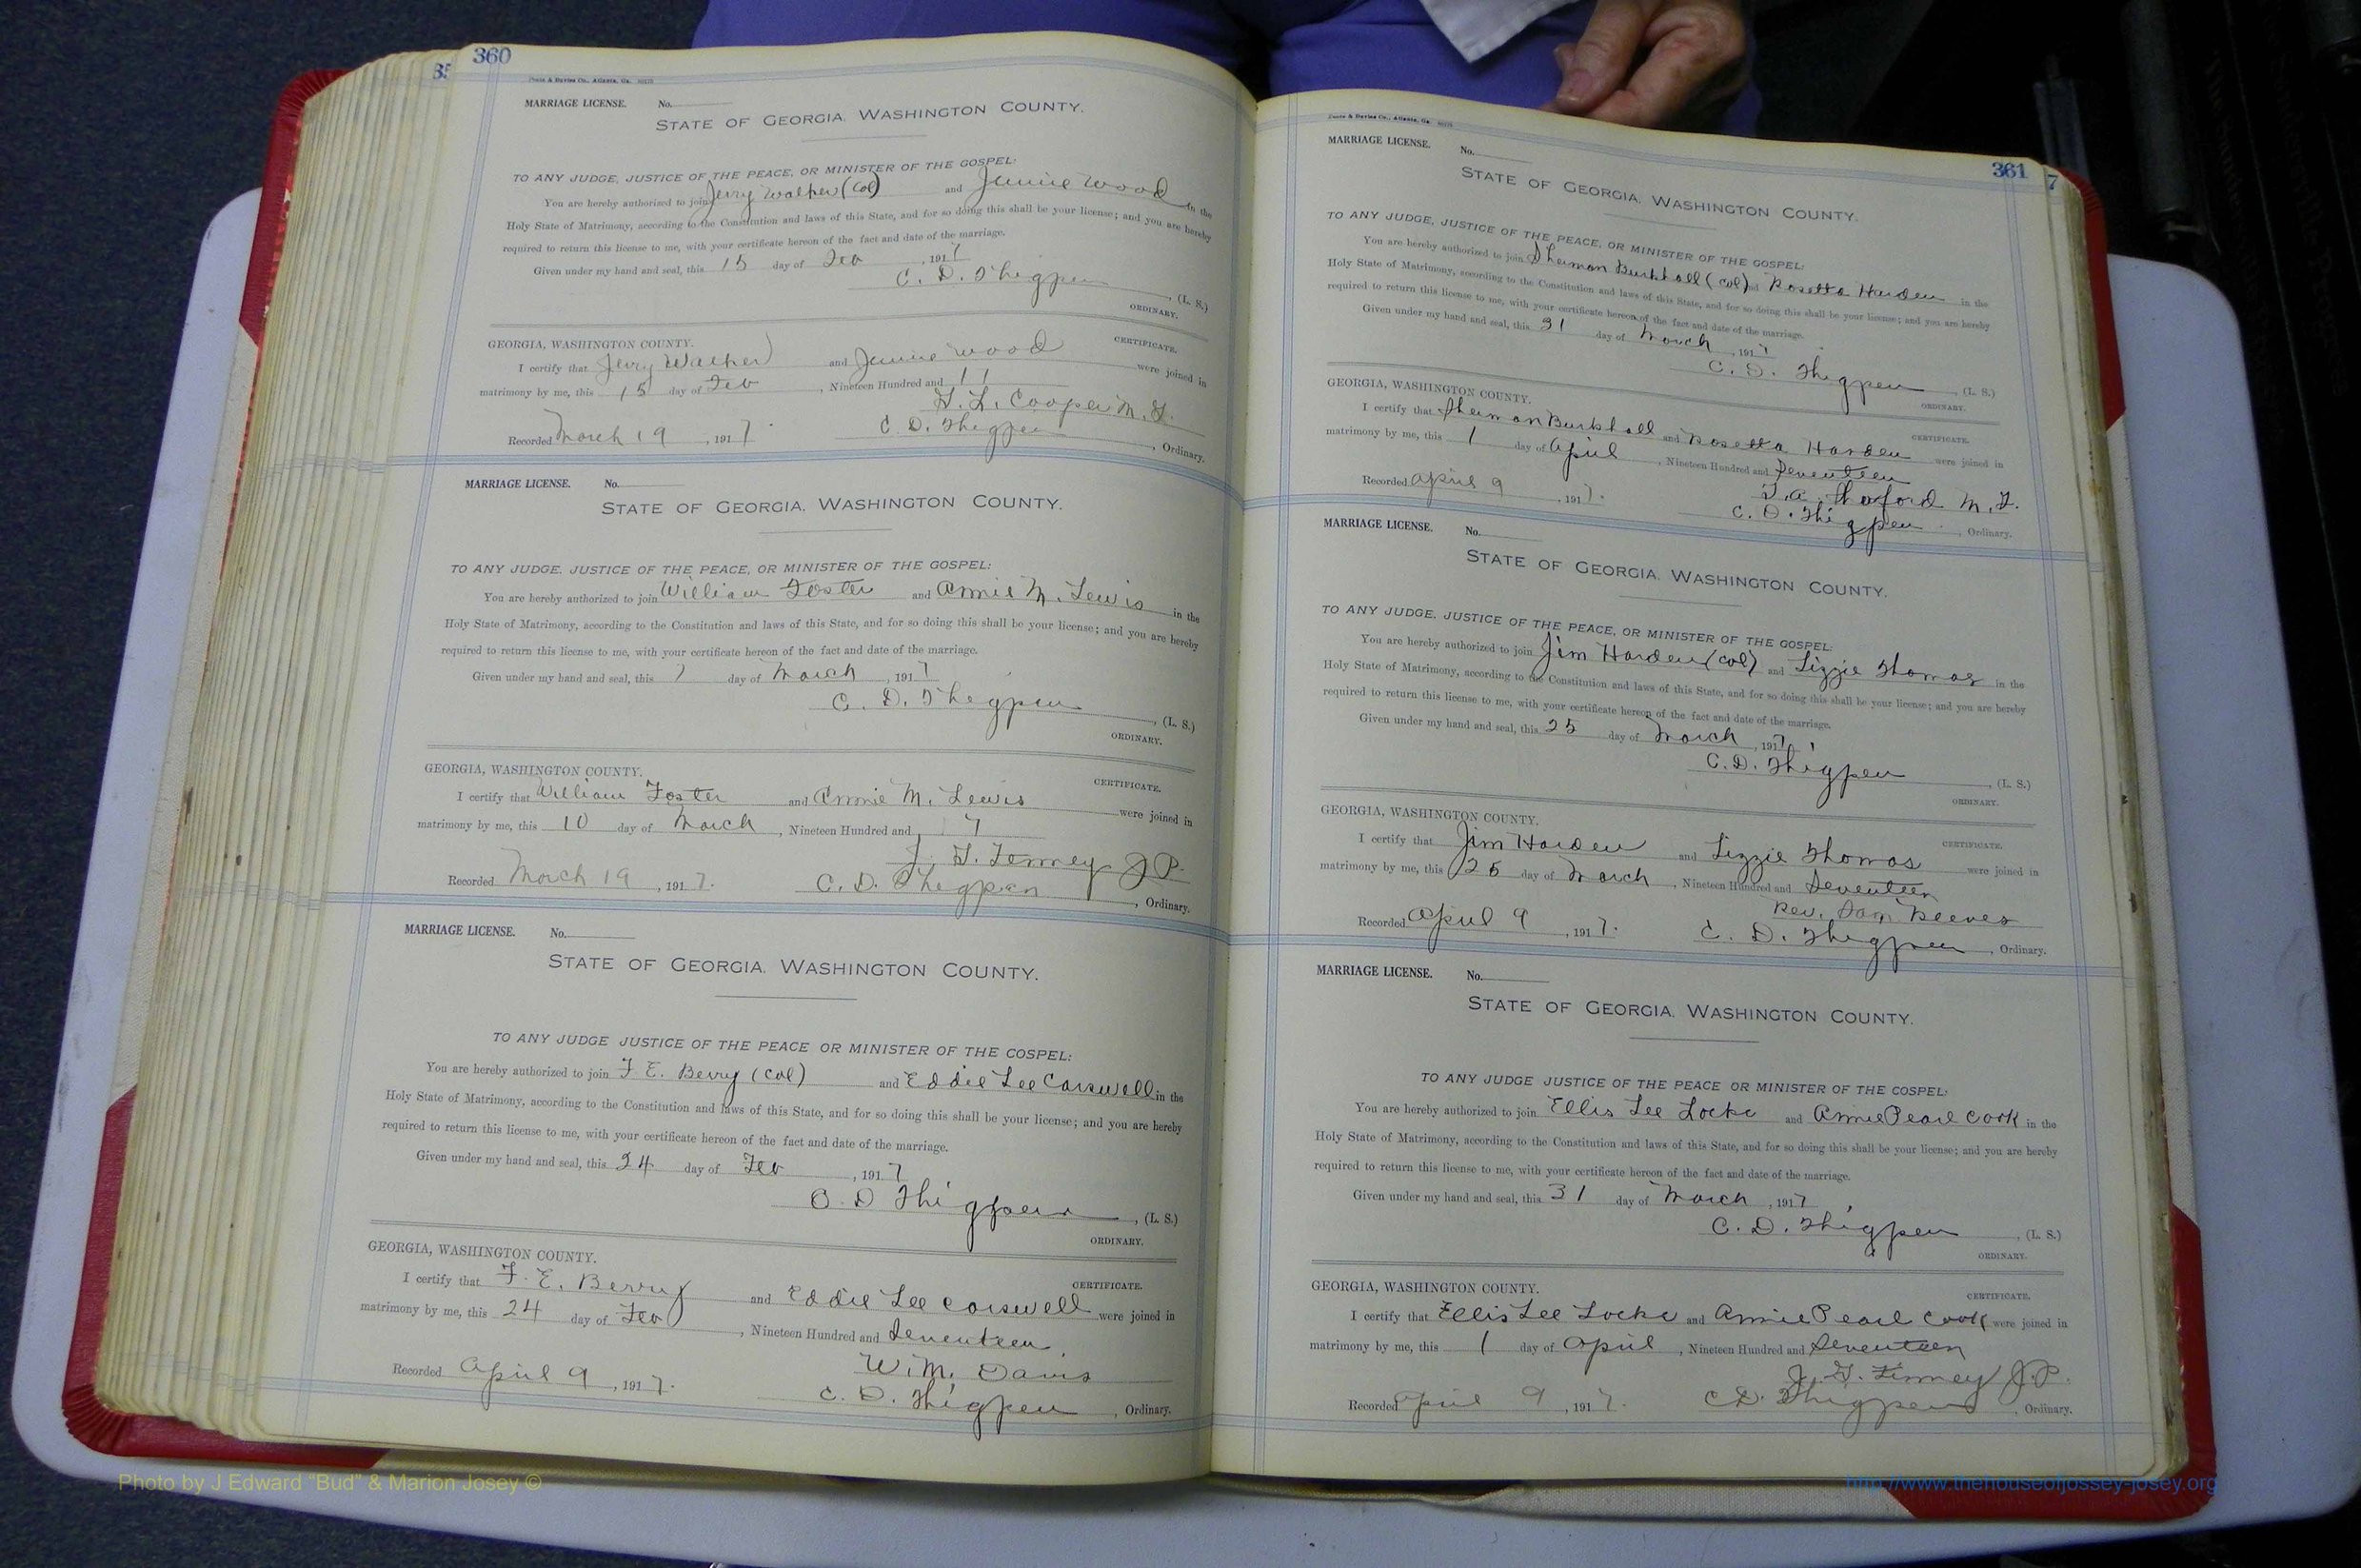 360
Foote & Davies Co., Atlanta, Ga.
MARRIAGE LICENSE. No.
STATE OF GEORGIA. WASHINGTON COUNTY.
TO ANY JUDGE, JUSTICE OF THE PEACE, OR MINISTER OF THE GOSPEL:
You are hereby authorized to join Jerry Walker (Col) and Jennie Wood in the
Holy State of Matrimony, according to the Constitution and laws of this State, and for so doing this shall be your license; and you are hereby
required to return this license to me, with your certificate hereon of the fact and date of the marriage.
Given under my hand and seal, this 15 day of Feb, 1917
C. D. Thigpen, (L. S.)
ORDINARY.
GEORGIA, WASHINGTON COUNTY. CERTIFICATE.
I certify that Jerry Walker and Jennie Wood were joined in
matrimony by me, this 15 day of Feb, Nineteen Hundred and
Cooper M. G.
Recorded March 19, 1917. C. D. Thigpen, Ordinary.
MARRIAGE LICENSE. No.
STATE OF GEORGIA. WASHINGTON COUNTY.
TO ANY JUDGE. JUSTICE OF THE PEACE, OR MINISTER OF THE GOSPEL:
You are hereby authorized to join William Foster and Annie M. Lewis in the
Holy State of Matrimony, according to the Constitution and laws of this State, and for so doing this shall be your license; and you are hereby
required to return this license to me, with your certificate hereon of the fact and date of the marriage.
Given under my hand and seal, this 7 day of March, 1917
C. D. Thigpen, (L. S.)
ORDINARY.
GEORGIA, WASHINGTON COUNTY. CERTIFICATE.
I certify that William Foster and Annie M. Lewis were joined in
matrimony by me, this 10 day of March, Nineteen Hundred and 7
J. P.
Recorded March 19, 1917. C. D. Thigpen, Ordinary.
MARRIAGE LICENSE. No.
STATE OF GEORGIA. WASHINGTON COUNTY.
TO ANY JUDGE JUSTICE OF THE PEACE OR MINISTER OF THE GOSPEL:
You are hereby authorized to join F. E. Berry (Col) and Eddie Lee Carswell in the
Holy State of Matrimony, according to the Constitution and laws of this State, and for so doing this shall be your license; and you are hereby
required to return this license to me, with your certificate hereon of the fact and date of the marriage.
Given under my hand and seal, this 24 day of Feb, 1917
C. D. Thigpen, (L. S.)
ORDINARY.
GEORGIA, WASHINGTON COUNTY. CERTIFICATE.
I certify that F. E. Berry and Eddie Lee Carswell were joined in
matrimony by me, this 24 day of Feb, Nineteen Hundred and Seventeen.
W. M. Davis
Recorded April 9, 1917. C. D. Thigpen, Ordinary.
361
7
Foote & Davies Co., Atlanta, Ga.
MARRIAGE LICENSE. No.
STATE OF GEORGIA. WASHINGTON COUNTY.
TO ANY JUDGE, JUSTICE OF THE PEACE, OR MINISTER OF THE GOSPEL:
You are hereby authorized to join Sherman Burkhall (Col) and Rosetta Harden in the
Holy State of Matrimony, according to the Constitution and laws of this State, and for so doing this shall be your license; and you are hereby
required to return this license to me, with your certificate hereon of the fact and date of the marriage.
Given under my hand and seal, this 31 day of March, 1917
C. D. Thigpen, (L. S.)
ORDINARY.
GEORGIA, WASHINGTON COUNTY. CERTIFICATE.
I certify that Sherman Burkhall and Rosetta Harden were joined in
matrimony by me, this 1 day of April, Nineteen Hundred and Seventeen
M. G.
Recorded April 9, 1917. C. D. Thigpen, Ordinary.
MARRIAGE LICENSE. No.
STATE OF GEORGIA. WASHINGTON COUNTY.
TO ANY JUDGE, JUSTICE OF THE PEACE, OR MINISTER OF THE GOSPEL:
You are hereby authorized to join Jim Harden (Col) and Lizzie Thomas in the
Holy State of Matrimony, according to the Constitution and laws of this State, and for so doing this shall be your license; and you are hereby
required to return this license to me, with your certificate hereon of the fact and date of the marriage.
Given under my hand and seal, this 25 day of March, 1917
C. D. Thigpen, (L. S.)
ORDINARY.
GEORGIA, WASHINGTON COUNTY. CERTIFICATE.
I certify that Jim Harden and Lizzie Thomas were joined in
matrimony by me, this 25 day of March, Nineteen Hundred and Seventeen
Rev. Sam Reeves
Recorded April 9, 1917. C. D. Thigpen, Ordinary.
MARRIAGE LICENSE. No.
STATE OF GEORGIA. WASHINGTON COUNTY.
TO ANY JUDGE JUSTICE OF THE PEACE OR MINISTER OF THE GOSPEL:
You are hereby authorized to join Ellis Lee Locke and Annie Pearl Cook in the
Holy State of Matrimony, according to the Constitution and laws of this State, and for so doing this shall be your license; and you are hereby
required to return this license to me, with your certificate hereon of the fact and date of the marriage.
Given under my hand and seal, this 31 day of March, 1917
C. D. Thigpen, (L. S.)
ORDINARY.
GEORGIA, WASHINGTON COUNTY. CERTIFICATE.
I certify that Ellis Lee Locke and Annie Pearl Cook were joined in
matrimony by me, this 1 day of April, Nineteen Hundred and Seventeen
J. P.
Recorded April 9, 1917. C. D. Thigpen, Ordinary.
Photo by J Edward "Bud" & Marion Josey ©
http://www.thehouseofjossey-josey.org